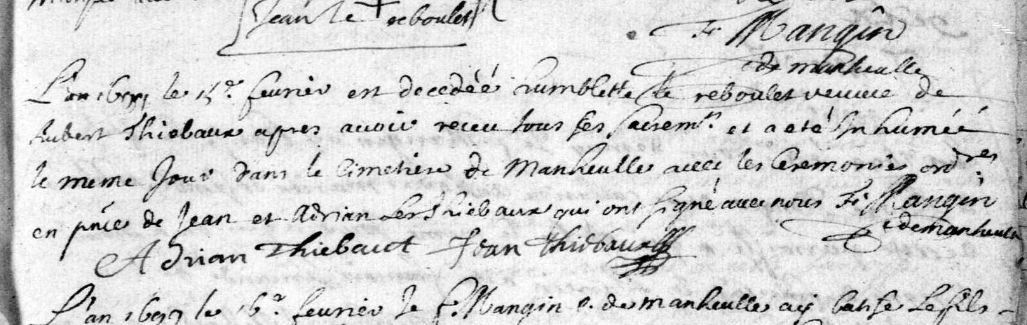 Jean le + reboulet
F. Mangin
de manheulle
L'an 1699 le 15e. fevrier est decedéé humblette le reboulet veuve de
Aubert Thiebaux apres avoir receu tous ses sacremts et a eté Inhuméé
le meme Jour dans le Cimetiere de Manheulle avec les Ceremonies ordres
en pnce de Jean et Adrian Les Thiebaux qui ont signé avec nous F. Mangin
de manheulle
Adrian Thiebaut Jean Thiebaux
L'an 1699 le 16e. fevrier le F. Mangin c. de manheulle ay batisé le fils